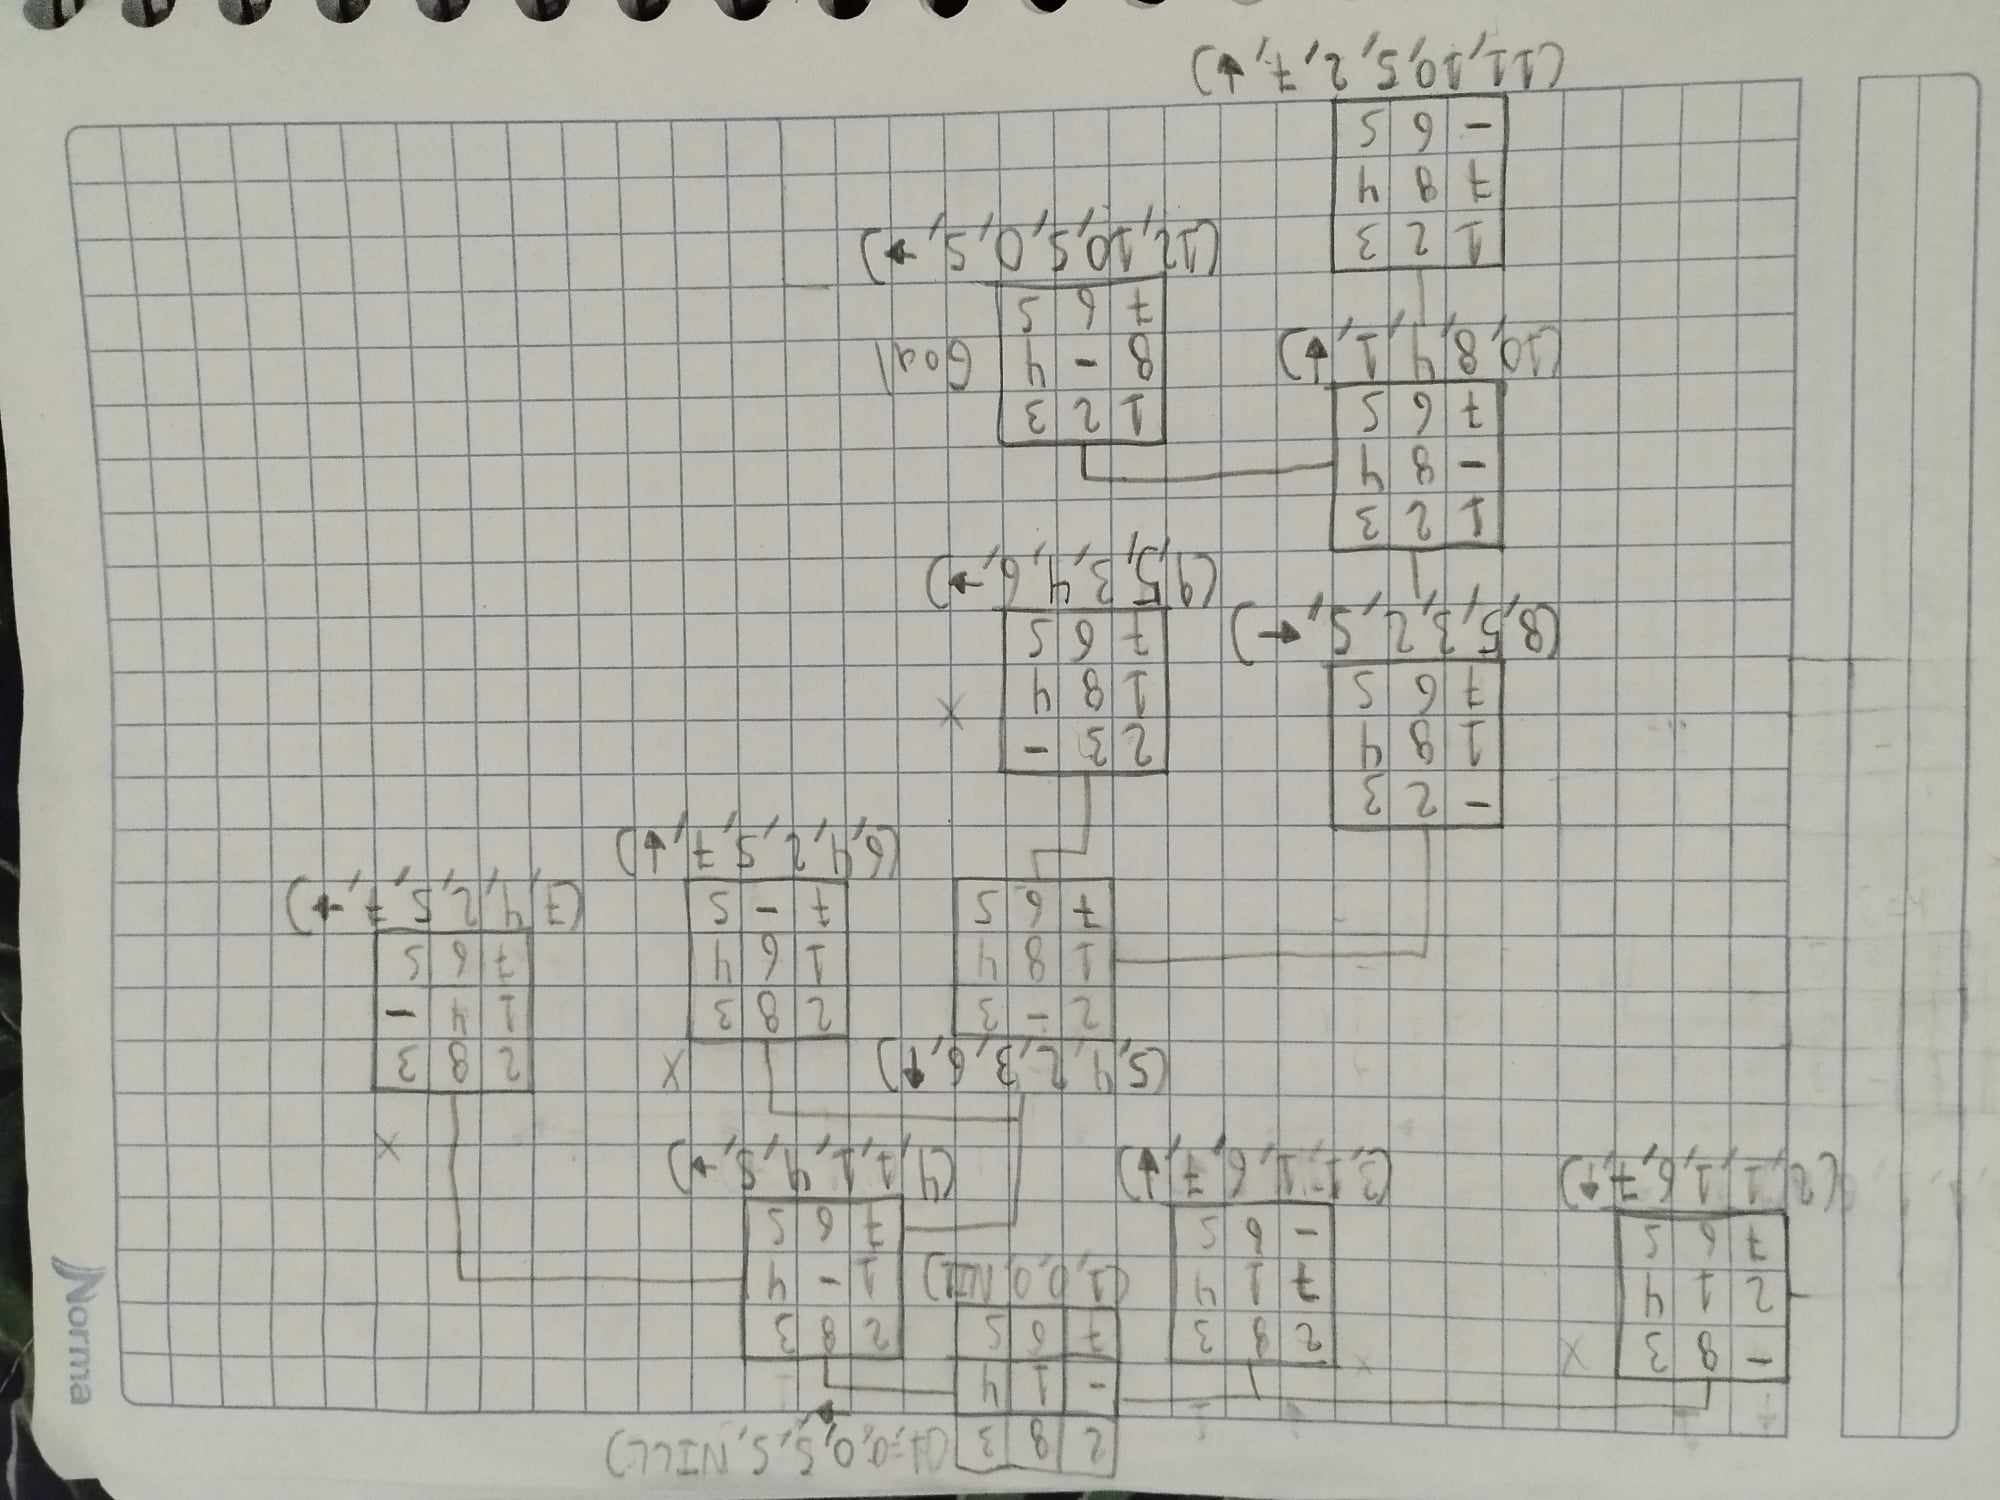 2 8 3
- 1 4
7 6 5
(1,0,0,NIL)
- 8 3
2 1 4
7 6 5
(2,1,1,6,7,↑)
X
2 8 3
7 1 4
- 6 5
(3,1,1,6,7,↓)
2 8 3
1 - 4
7 6 5
(4,1,1,4,5,→)
(5,4,2,3,6,↑)
2 - 3
1 8 4
7 6 5
X
2 8 3
1 6 4
7 - 5
(6,4,2,5,7,↓)
X
2 8 3
1 4 -
7 6 5
(7,4,2,5,7,→)
- 2 3
1 8 4
7 6 5
(8,5,3,2,5,←)
2 3 -
1 8 4
7 6 5
X
(9,5,3,4,6,→)
1 2 3
- 8 4
7 6 5
(10,8,4,1,↓)
1 2 3
8 - 4
7 6 5
Goal
(12,10,5,0,5,→)
1 2 3
7 8 4
- 6 5
(11,10,5,2,7,↓)
Norma